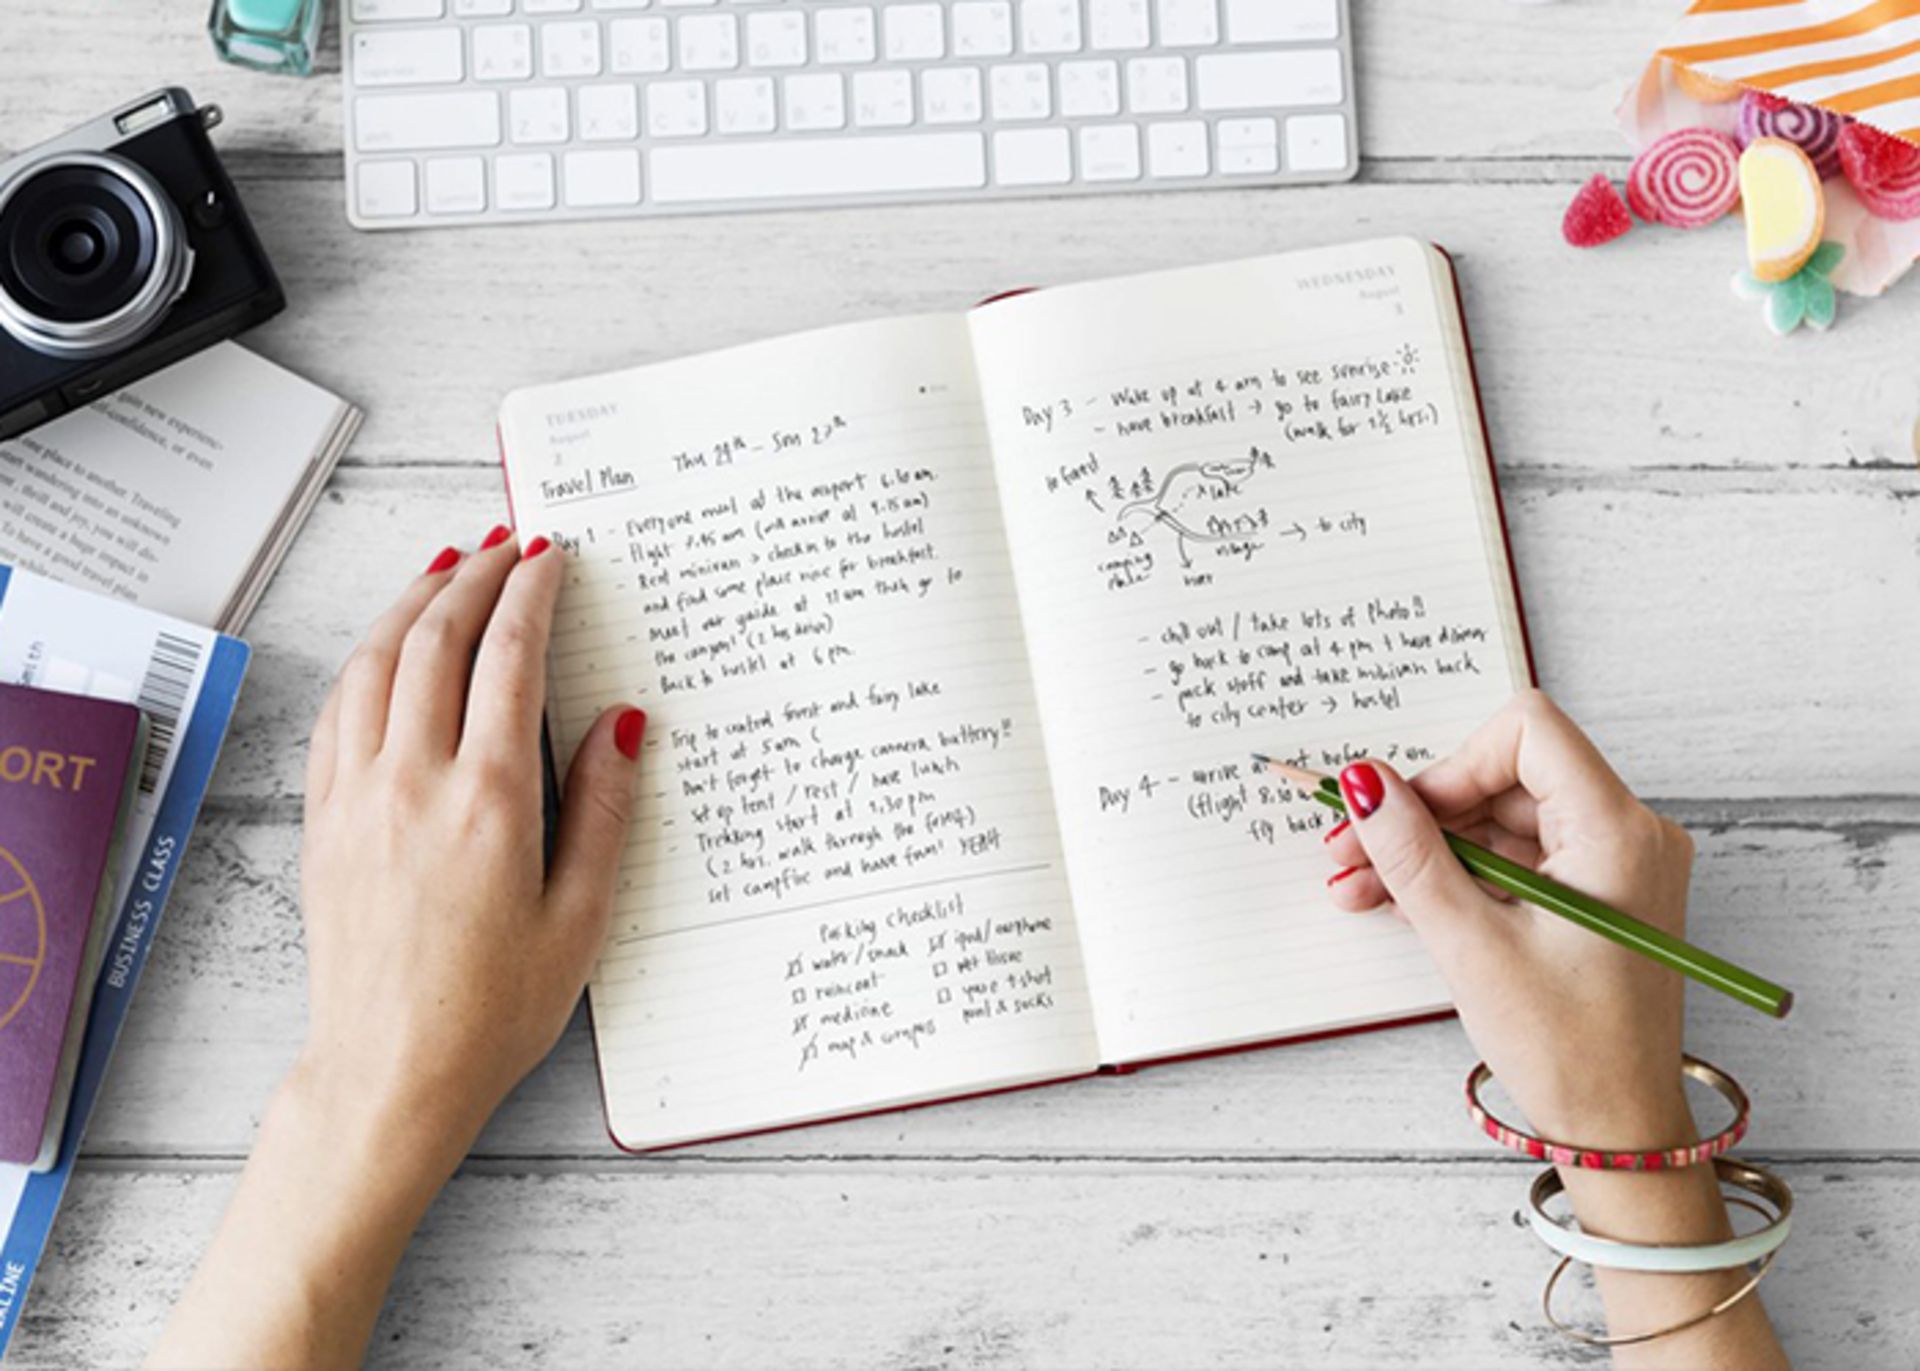 TUESDAY
August
2
Travel Plan
Day 1 - Everyone meet at the airport 6.10 am.
- Flight 7.45 am (will arrive at 9.15 am)
- Rent minivan → check in to the hostel
and find some place nice for breakfast.
- Meet our guide at 11 am then go to
the canyon! (2 hrs drive)
- Back to hostel at 6 pm.
- Trip to central forest and fairy lake
start at 5 am (
- Don't forget to charge camera battery!!
- Set up tent / rest / have lunch
- Trekking start at 1.30 pm
(2 hrs. walk through the forest)
set campfire and have fun! YEAH
Packing checklist
water / snack
raincoat
medicine
map & compass
ipod / earphone
wet tissue
t-shirt
pant & socks
WEDNESDAY
August
3
Day 3 - Wake up at 4 am to see sunrise
- have breakfast → go to fairy lake
(walk for 1½ hrs.)
to forest
lake
camping
place
river
village → to city
- chill out / take lots of photo!!
- go back to camp at 4 pm & have dinner
- pack stuff and take minivan back
to city center → hostel
Day 4 - arrive before 7 am.
(flight 8.30
fly back
gain new experienc-
self-confidence, or even
one place to another. Traveling
start wandering into an unknown
thrill and joy, you will dis-
will create a huge impact in
To have a good travel plan
ORT
BUSINESS CLASS